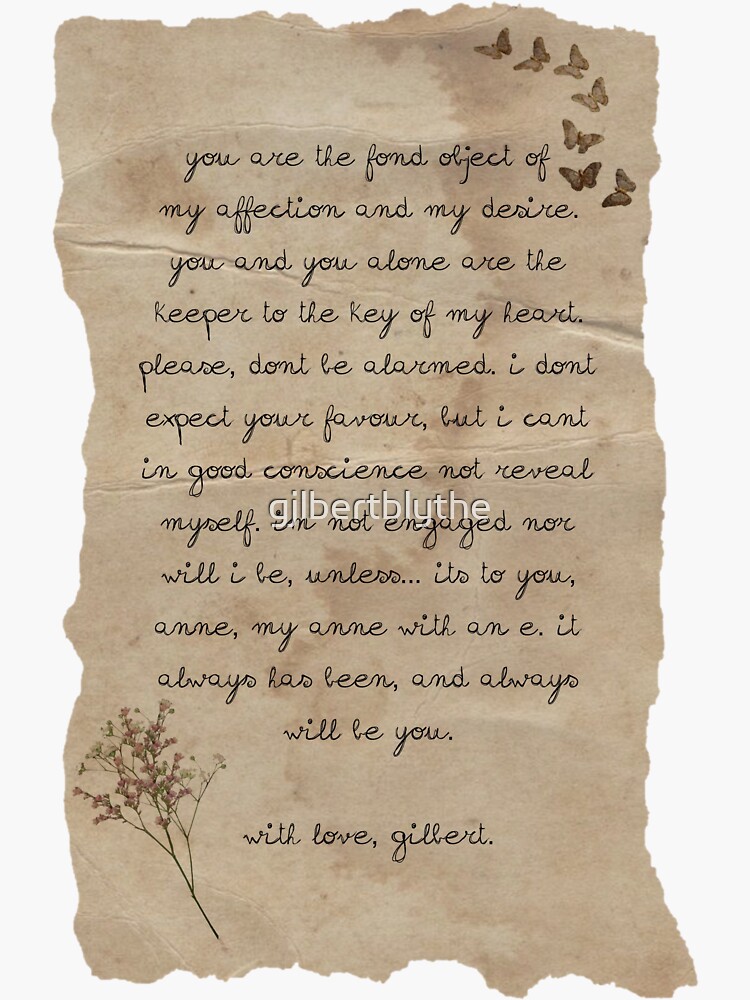 you are the fond object of
my affection and my desire.
you and you alone are the
keeper to the key of my heart.
please, dont be alarmed. i dont
expect your favour, but i cant
in good conscience not reveal
gilbertbluthe
myself. im not engaged nor
will i be, unless... its to you,
anne, my anne with an e. it
always has been, and always
will be you.
with love, gilbert.